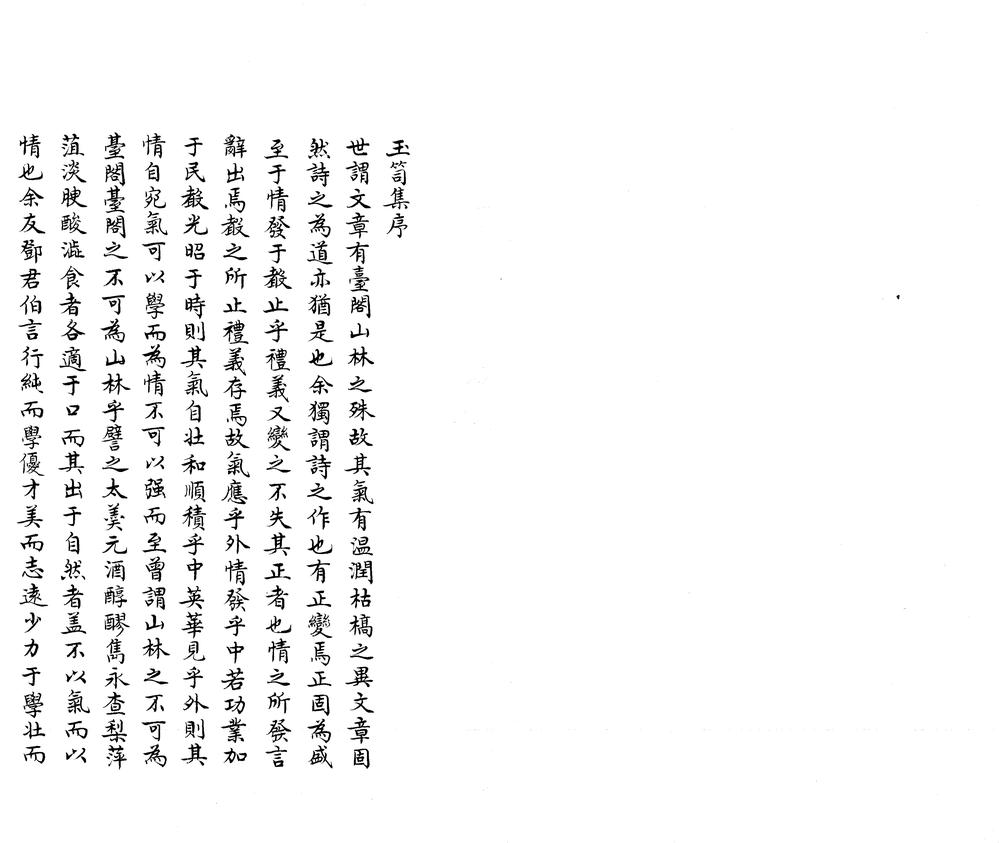 玉笥集序
世謂文章有臺閣山林之殊故其氣有温潤枯槁之異文章固
然詩之為道亦猶是也余獨謂詩之作也有正變焉正固為盛
至于情發于聲止乎禮義又變之不失其正者也情之所發言
辭出焉聲之所止禮義存焉故氣應乎外情發乎中若功業加
于民聲光昭于時則其氣自壯和順積乎中英華見乎外則其
情自宛氣可以學而為情不可以强而至曾謂山林之不可為
臺閣臺閣之不可為山林乎譬之太羹元酒醇醪雋永查梨萍
菹淡腴酸澁食者各適于口而其出于自然者盖不以氣而以
情也余友鄧君伯言行純而學優才美而志遠少力于學壯而